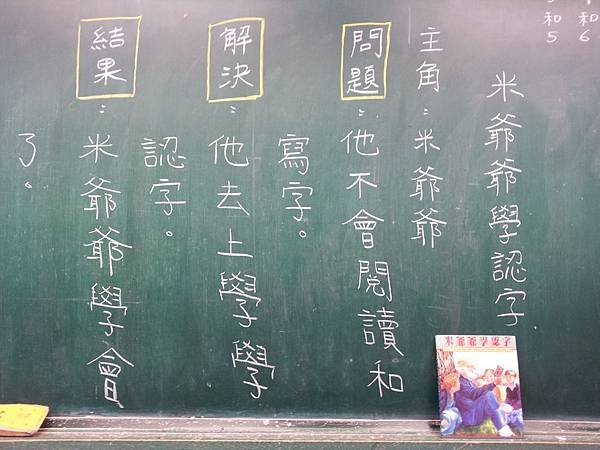 和6
和5
米爺爺學認字
主角：米爺爺
問題：他不會閱讀和
寫字。
解決：他去上學學
認字。
結果：米爺爺學會
了。
米爺爺學認字